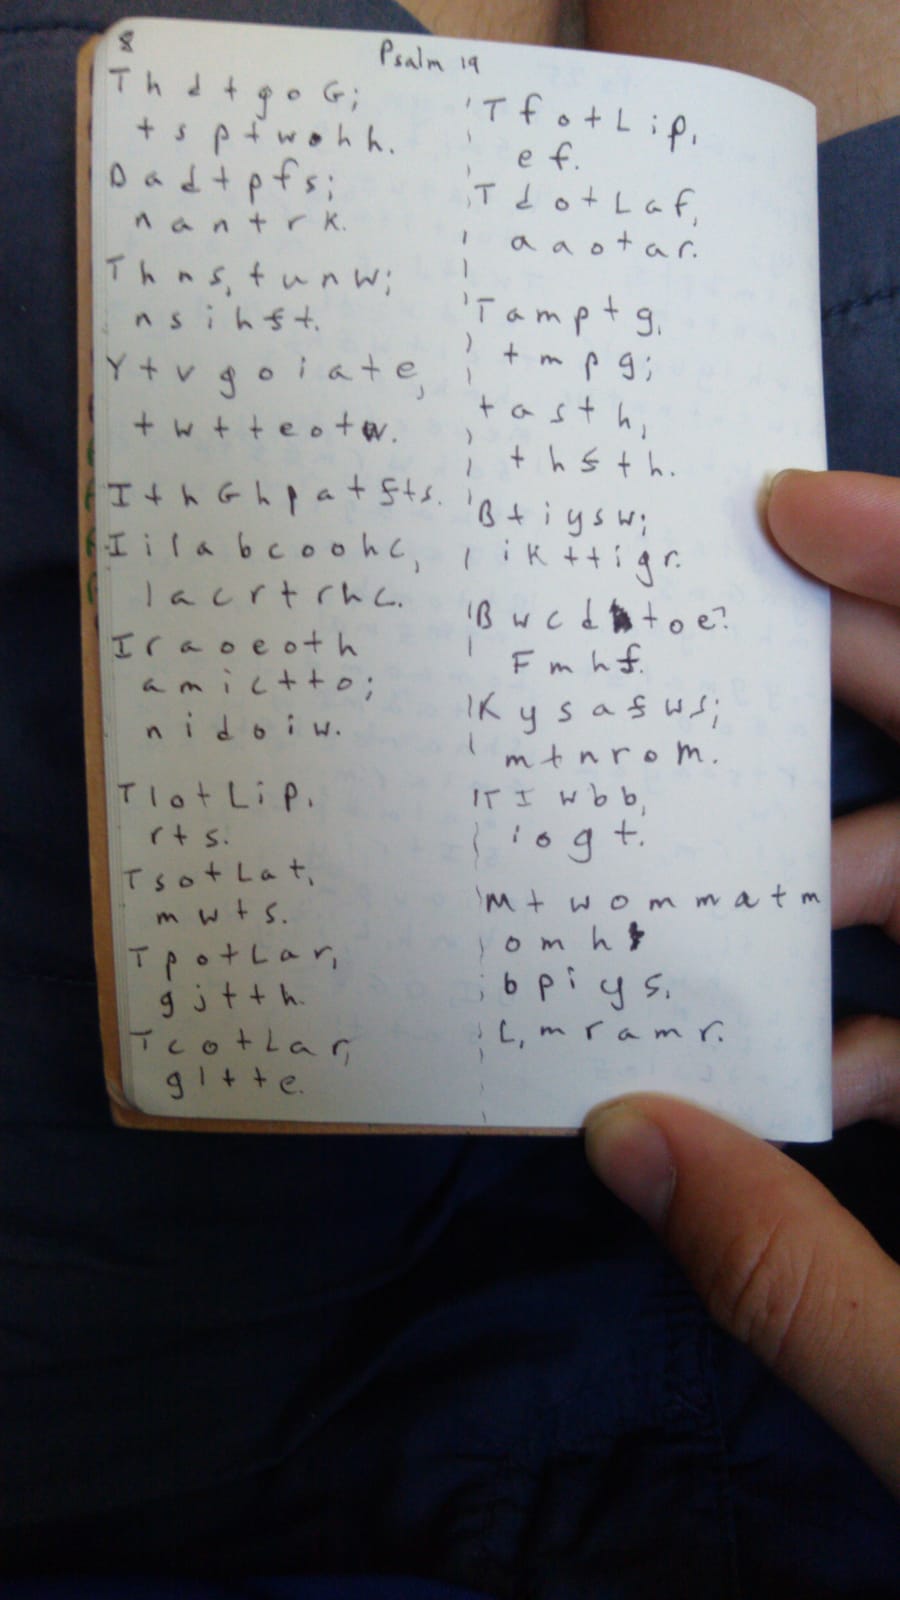 8
Psalm 19
T h d t g o G;
t s p t w o h h.
D a d t p f s;
n a n t r k.
T h n s, t u n w;
n s i h f t.
Y t v g o i a t e,
t w t t e o t w.
I t h G h p a t f t s.
I i l a b c o o h c,
l a c r t r h c.
I r a o e o t h
a m i c t t o;
n i d o i w.
T l o t L i p,
r t s.
T s o t L a t,
m w t s.
T p o t L a r,
g j t t h.
T c o t L a r,
g l t t e.
T f o t L i p,
e f.
T d o t L a f,
a a o t a r.
T a m p t g,
t m p g;
t a s t h,
t h f t h.
B t i y s w;
i k t t i g r.
B w c d t o e?
F m h f.
K y s a f w s;
m t n r o m.
T I w b b,
i o g t.
M t w o m m a t m
o m h
b p i y s,
L, m r a m r.